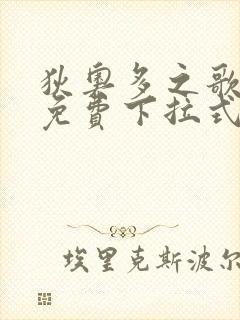 狄奧多之歌
免費下拉式
埃里克斯波尔